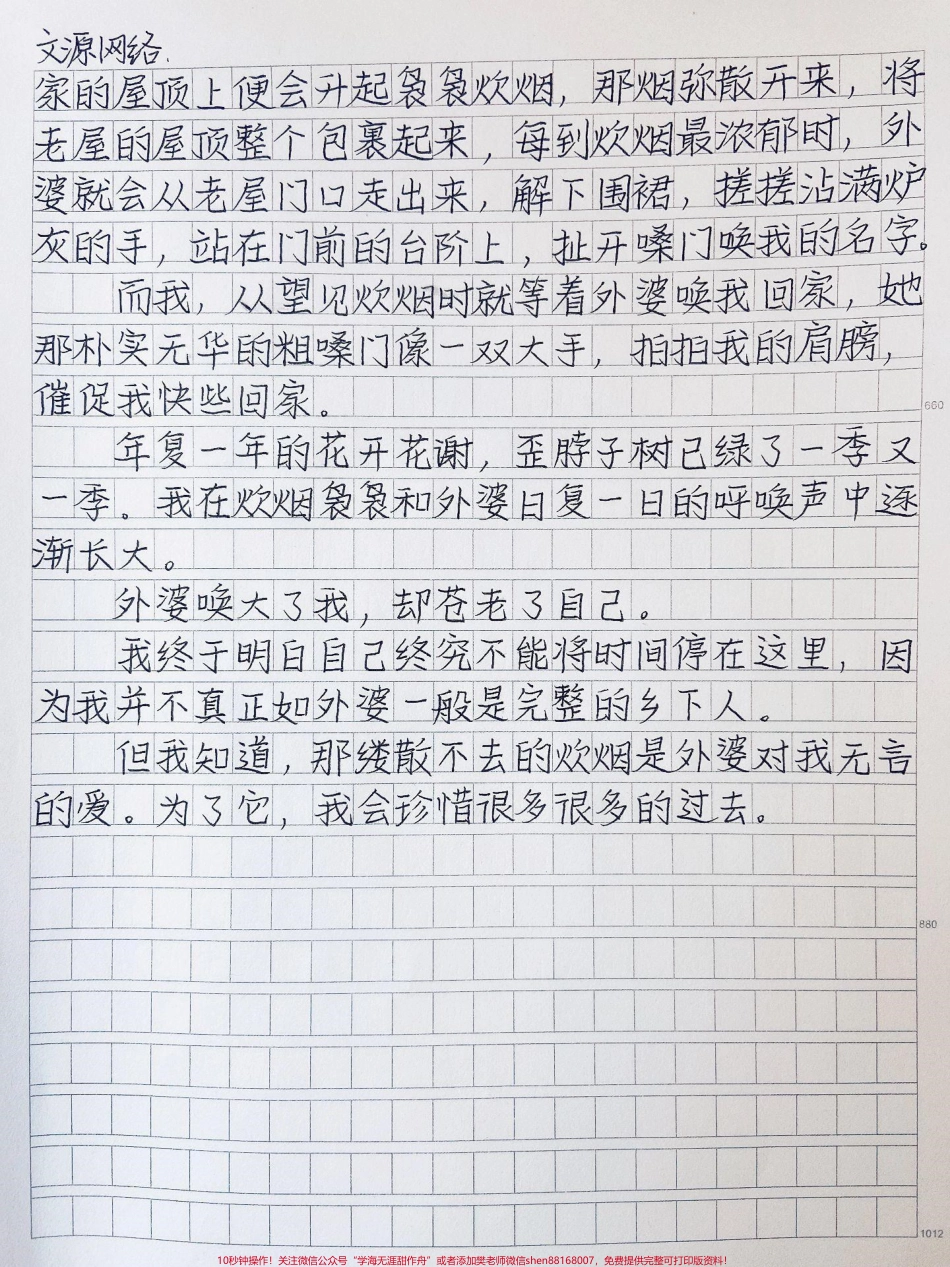 文源网络.
家的屋顶上便会升起袅袅炊烟，那烟弥散开来，将
老屋的屋顶整个包裹起来，每到炊烟最浓郁时，外
婆就会从老屋门口走出来，解下围裙，搓搓沾满炉
灰的手，站在门前的台阶上，扯开嗓门唤我的名字。
而我，从望见炊烟时就等着外婆唤我回家，她
那朴实无华的粗嗓门像一双大手，拍拍我的肩膀，
催促我快些回家。
660
年复一年的花开花谢，歪脖子树已绿了一季又
一季。我在炊烟袅袅和外婆日复一日的呼唤声中逐
渐长大。
外婆唤大了我，却苍老了自己。
我终于明白自己终究不能将时间停在这里，因
为我并不真正如外婆一般是完整的乡下人。
但我知道，那缕散不去的炊烟是外婆对我无言
的爱。为了它，我会珍惜很多很多的过去。
880
1012
10秒钟操作！关注微信公众号“学海无涯甜作舟”或者添加樊老师微信shen88168007，免费提供完整可打印版资料！